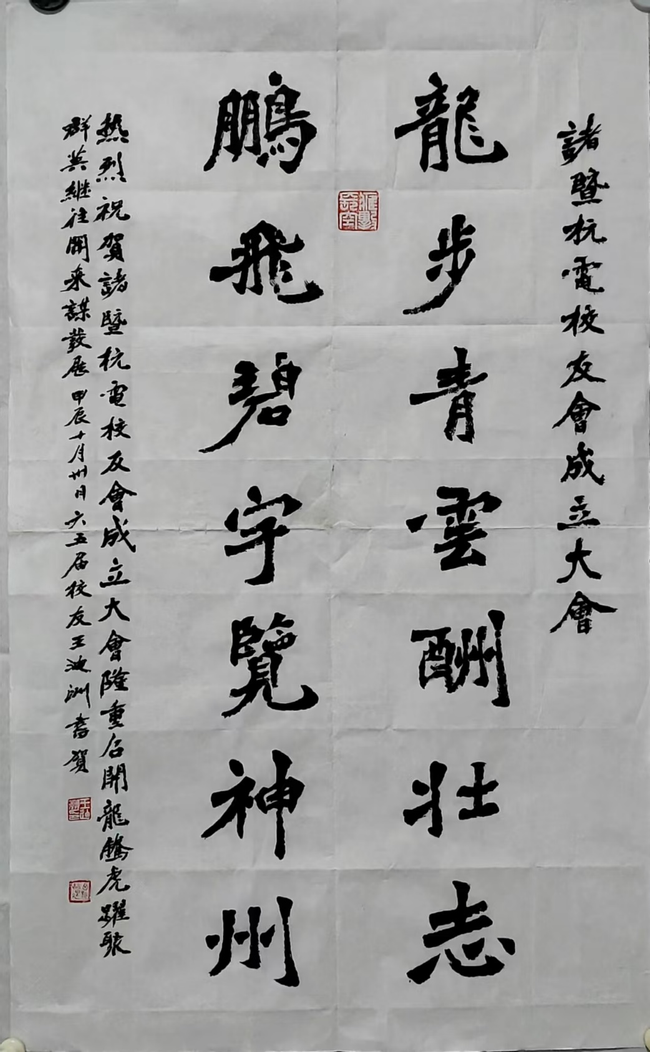 諸暨杭電校友會成立大會
龍步青雲酬壯志
鵬飛碧宇覽神州
热烈祝贺諸暨杭电校友會成立大會隆重召開龍騰虎躍聚
群英继往開来謀發展 甲辰十月卅日 六五届校友王波洲書贺